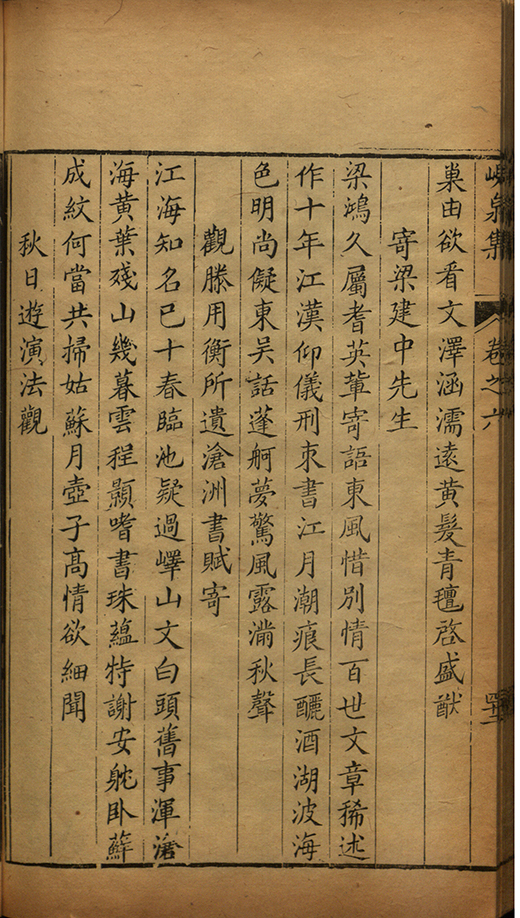 峴泉集
卷之六
巢由欲看文澤涵濡遠黃髮青氊啓盛猷
寄梁建中先生
梁鴻久屬耆英輩寄語東風惜別情百世文章稀述
作十年江漢仰儀刑朿書江月潮痕長釃酒湖波海
色明尚儗東吳話蓬舸夢驚風露滿秋聲
觀滕用衡所遺滄洲書賦寄
江海知名已十春臨池疑過嶧山文白頭舊事渾滄
海黃葉殘山幾暮雲程顥嗜書珠蘊特謝安躭臥蘚
成紋何當共掃姑蘇月壺子高情欲細聞
秋日遊演法觀